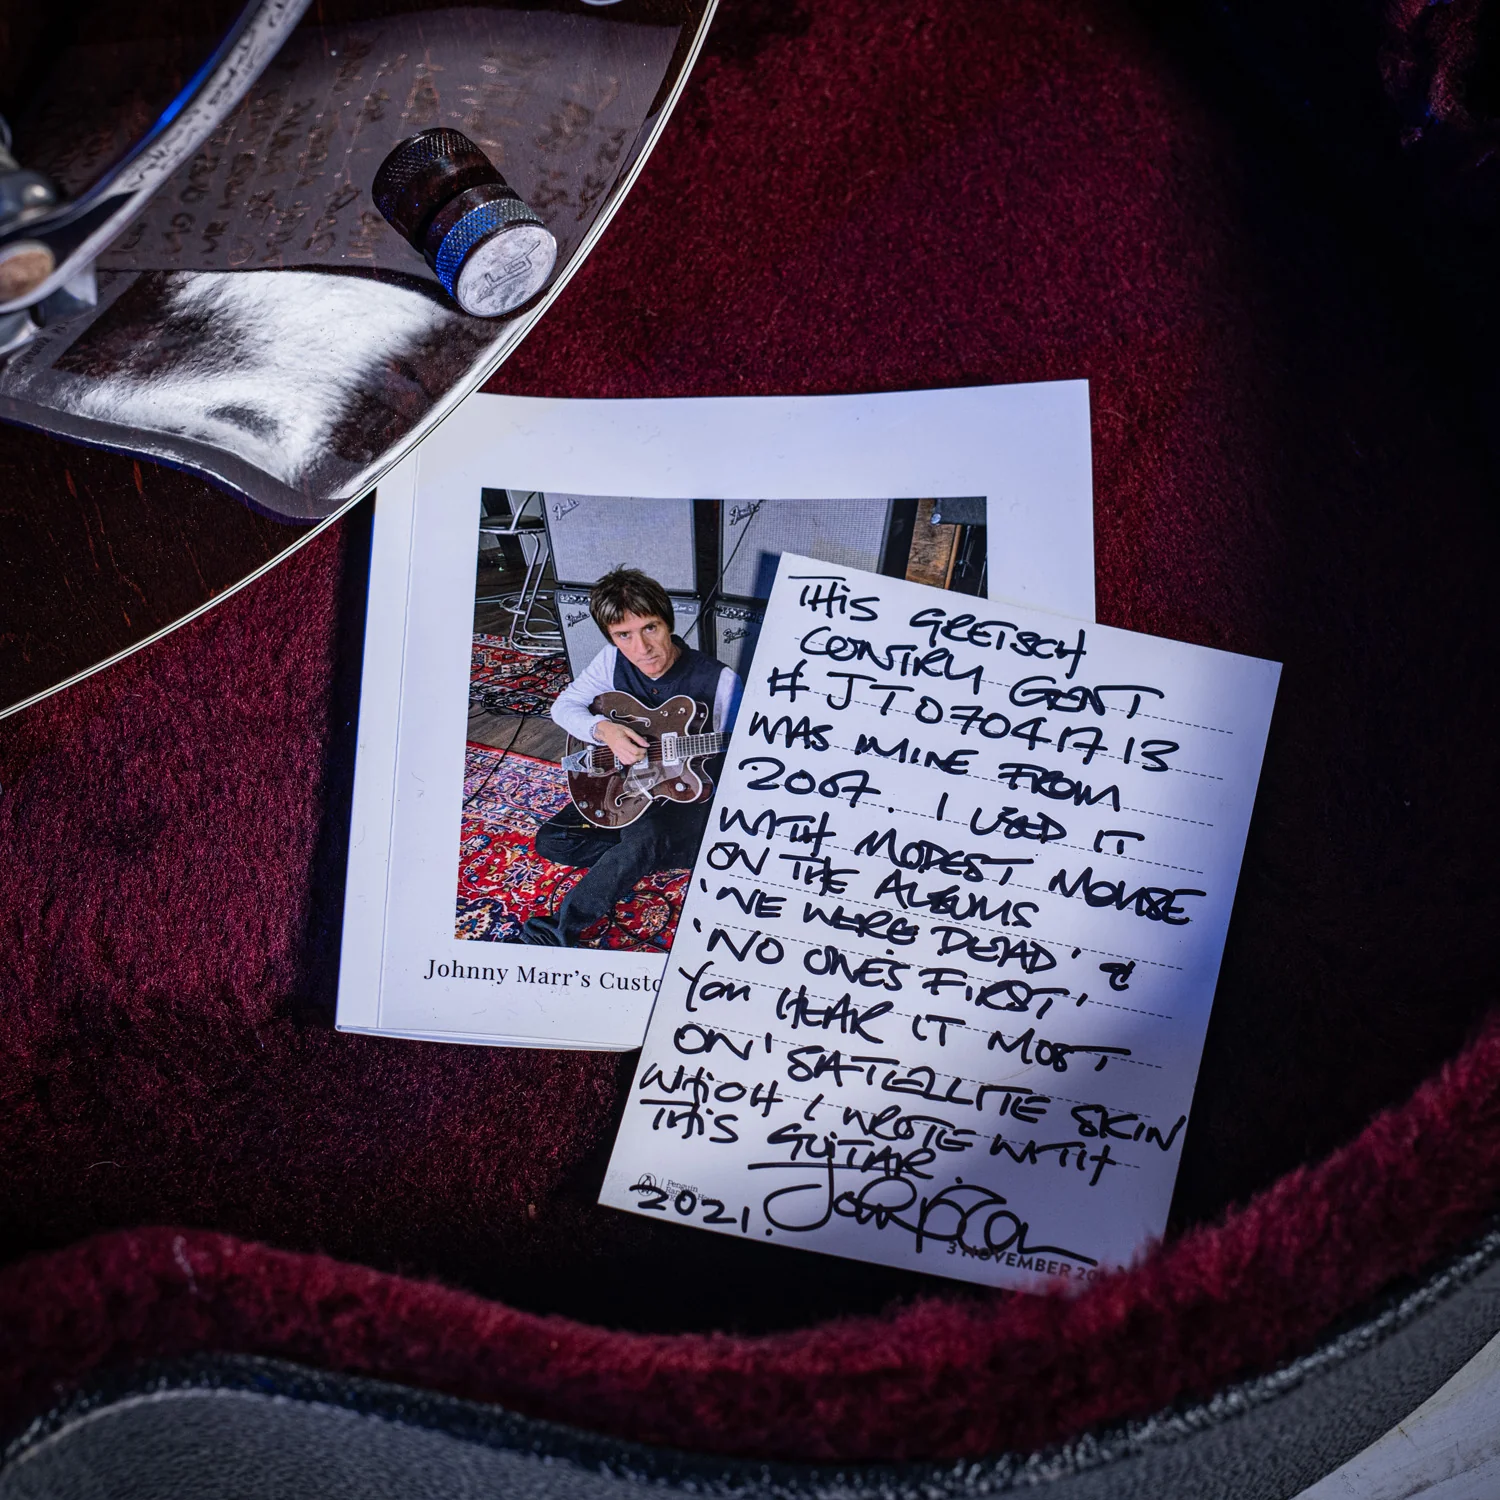 Fender
Fender
Fender
Fender
Johnny Marr's Custo
THiS GRETSCH
CONTRY GENT
# JT07041713
WAS MINE FROM
2007. I USED IT
WITH MODEST MOUSE
ON THE ALBUMS
'WE WERE DEAD' &
'NO ONE'S FIRST,'
You HEAR IT MOST
ON 'SATELLITE SKIN
WHiCH I WROTE WITH
THiS GUiTAR.
Penguin
2021.
3 NOVEMBER 20